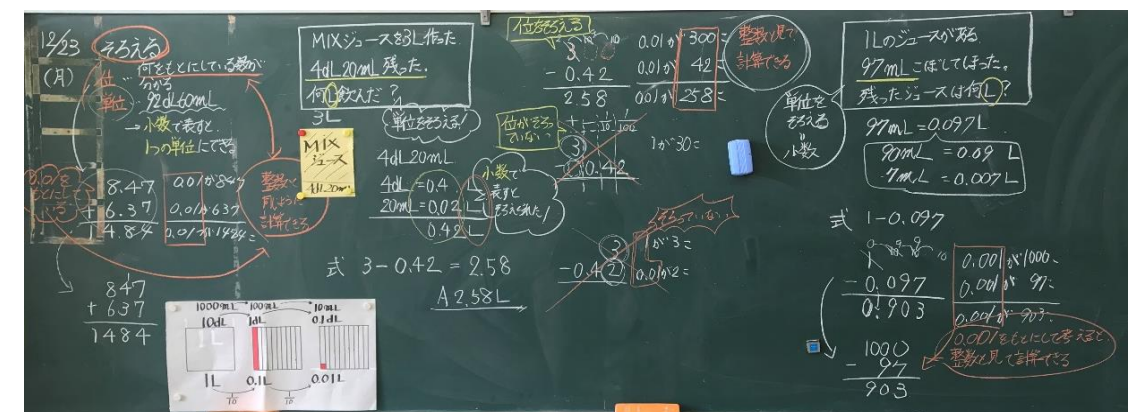 12/23
(月)
そろえる
位
何をもとにしている数が
分かる
単位
92dL60mL
→小数で表すと
1つの単位にできる。
8.47
+6.37
14.84
0.01が847
0.01が637
0.01が1484=
整数と
同じように
計算できる
847
+637
1484
MIXジュースを3L作った
4dL20mL残った.
何L飲んだ?
3L
MIX
ジュース
4dL20mL
単位をそろえる!
4dL20mL
4dL=0.4 L
20mL=0.02 L
0.42 L
小数で
表すと
そろえられた!
式 3-0.42=2.58
A 2.58L
1000mL 100mL 10mL
10dL 1dL 0.1dL
1L
1L 0.1L 0.01L
1/10 1/10
位をそろえる
3
-0.42
2.58
0.01が300=
0.01が 42=
0.01が258=
整数と見て
計算できる
位がそろ
っていない
1/10 1/100
3
-0.42
1が30=
そろっていない
3
-0.42
1が3=
0.01が2=
単位を
そろえる
小数
1Lのジュースがある
97mLこぼしてしまった。
残ったジュースは何L?
97mL=0.097L
90mL=0.09 L
7mL=0.007L
式 1-0.097
1
-0.097
0.903
0.001が1000=
0.001が 97=
0.001が 903=
1000
- 97
903
0.001をもとにして考えると
整数と見て計算できる